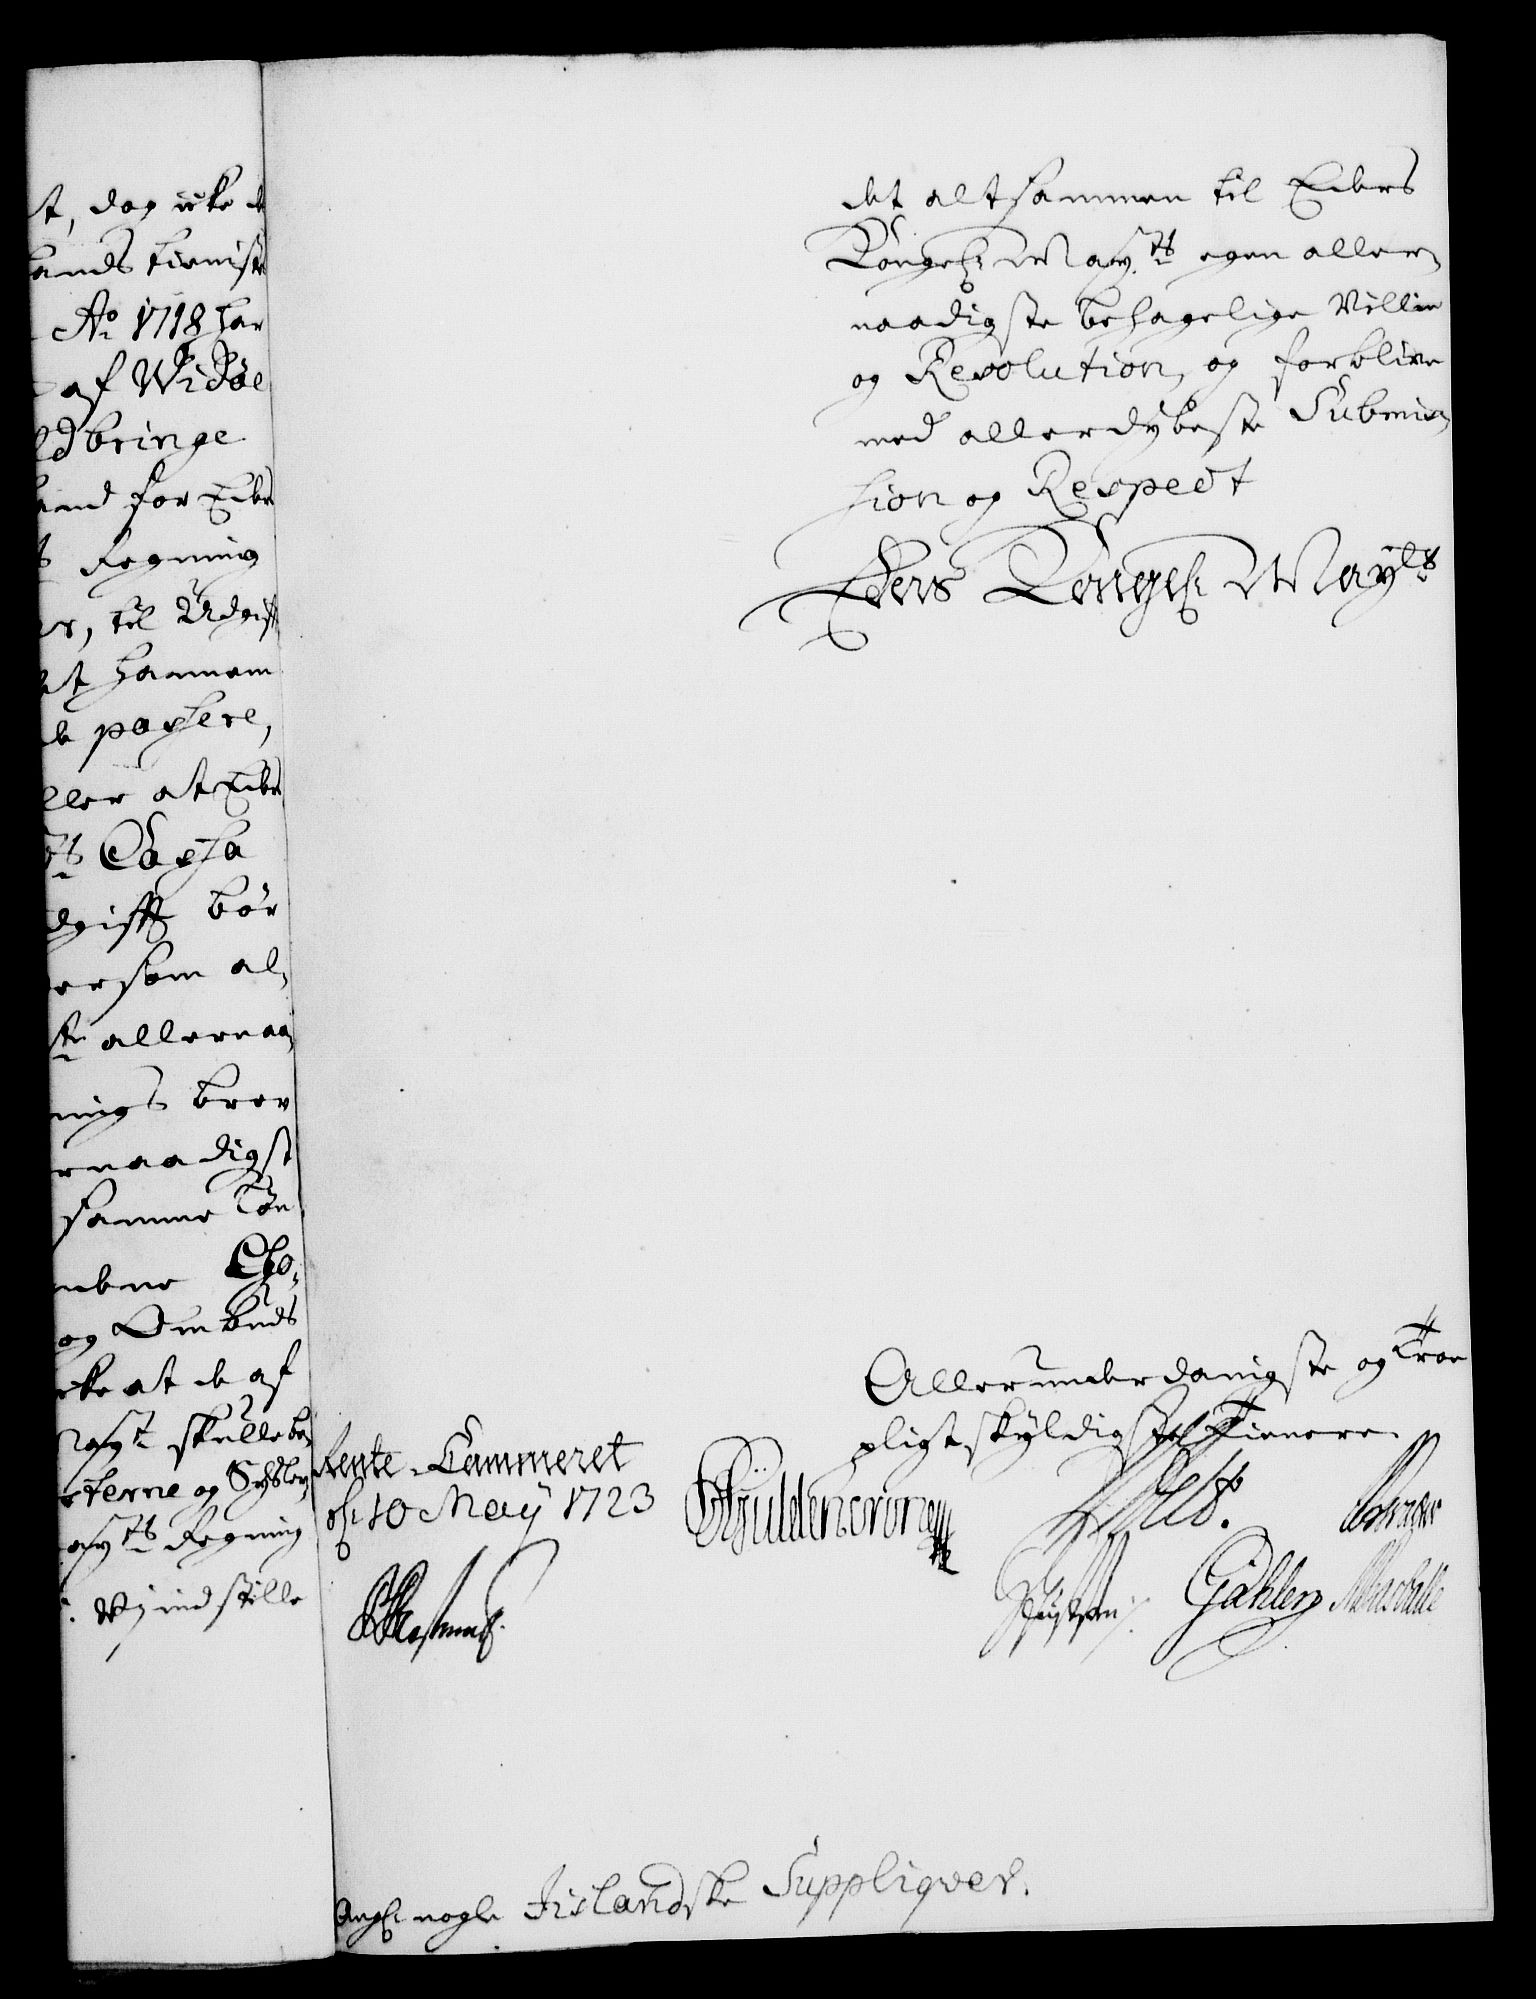 st, dog icke d
lands tieniste
Ao 1718 har
af Widöe
ldbringe
land for Eders
Regning
til Udgift
at hannem
de passere,
ller at Eders
ts Cassa
dgifft bör
ersom al-
ste allernaa
nings brev
rnaadigst
samme Con
og Ombuds
cke at de af
Mayt skulle be
sterne og Sysler
ayts Regning
Vj indstille
det altsammen til Eders
Kongel: Mayts egen aller-
naadigste behagelige Villie
og Resolution, og forblive
med allerdybeste Submis-
sion og Respect
Eders Kongel Mayts
Allerunderdanigste og Troe
pligtskyldigste Tienere
Rente-Cammeret
d: 10 May 1723
Güldencrone
Gähler
Angl: nogle Iislandske Suppliqver.